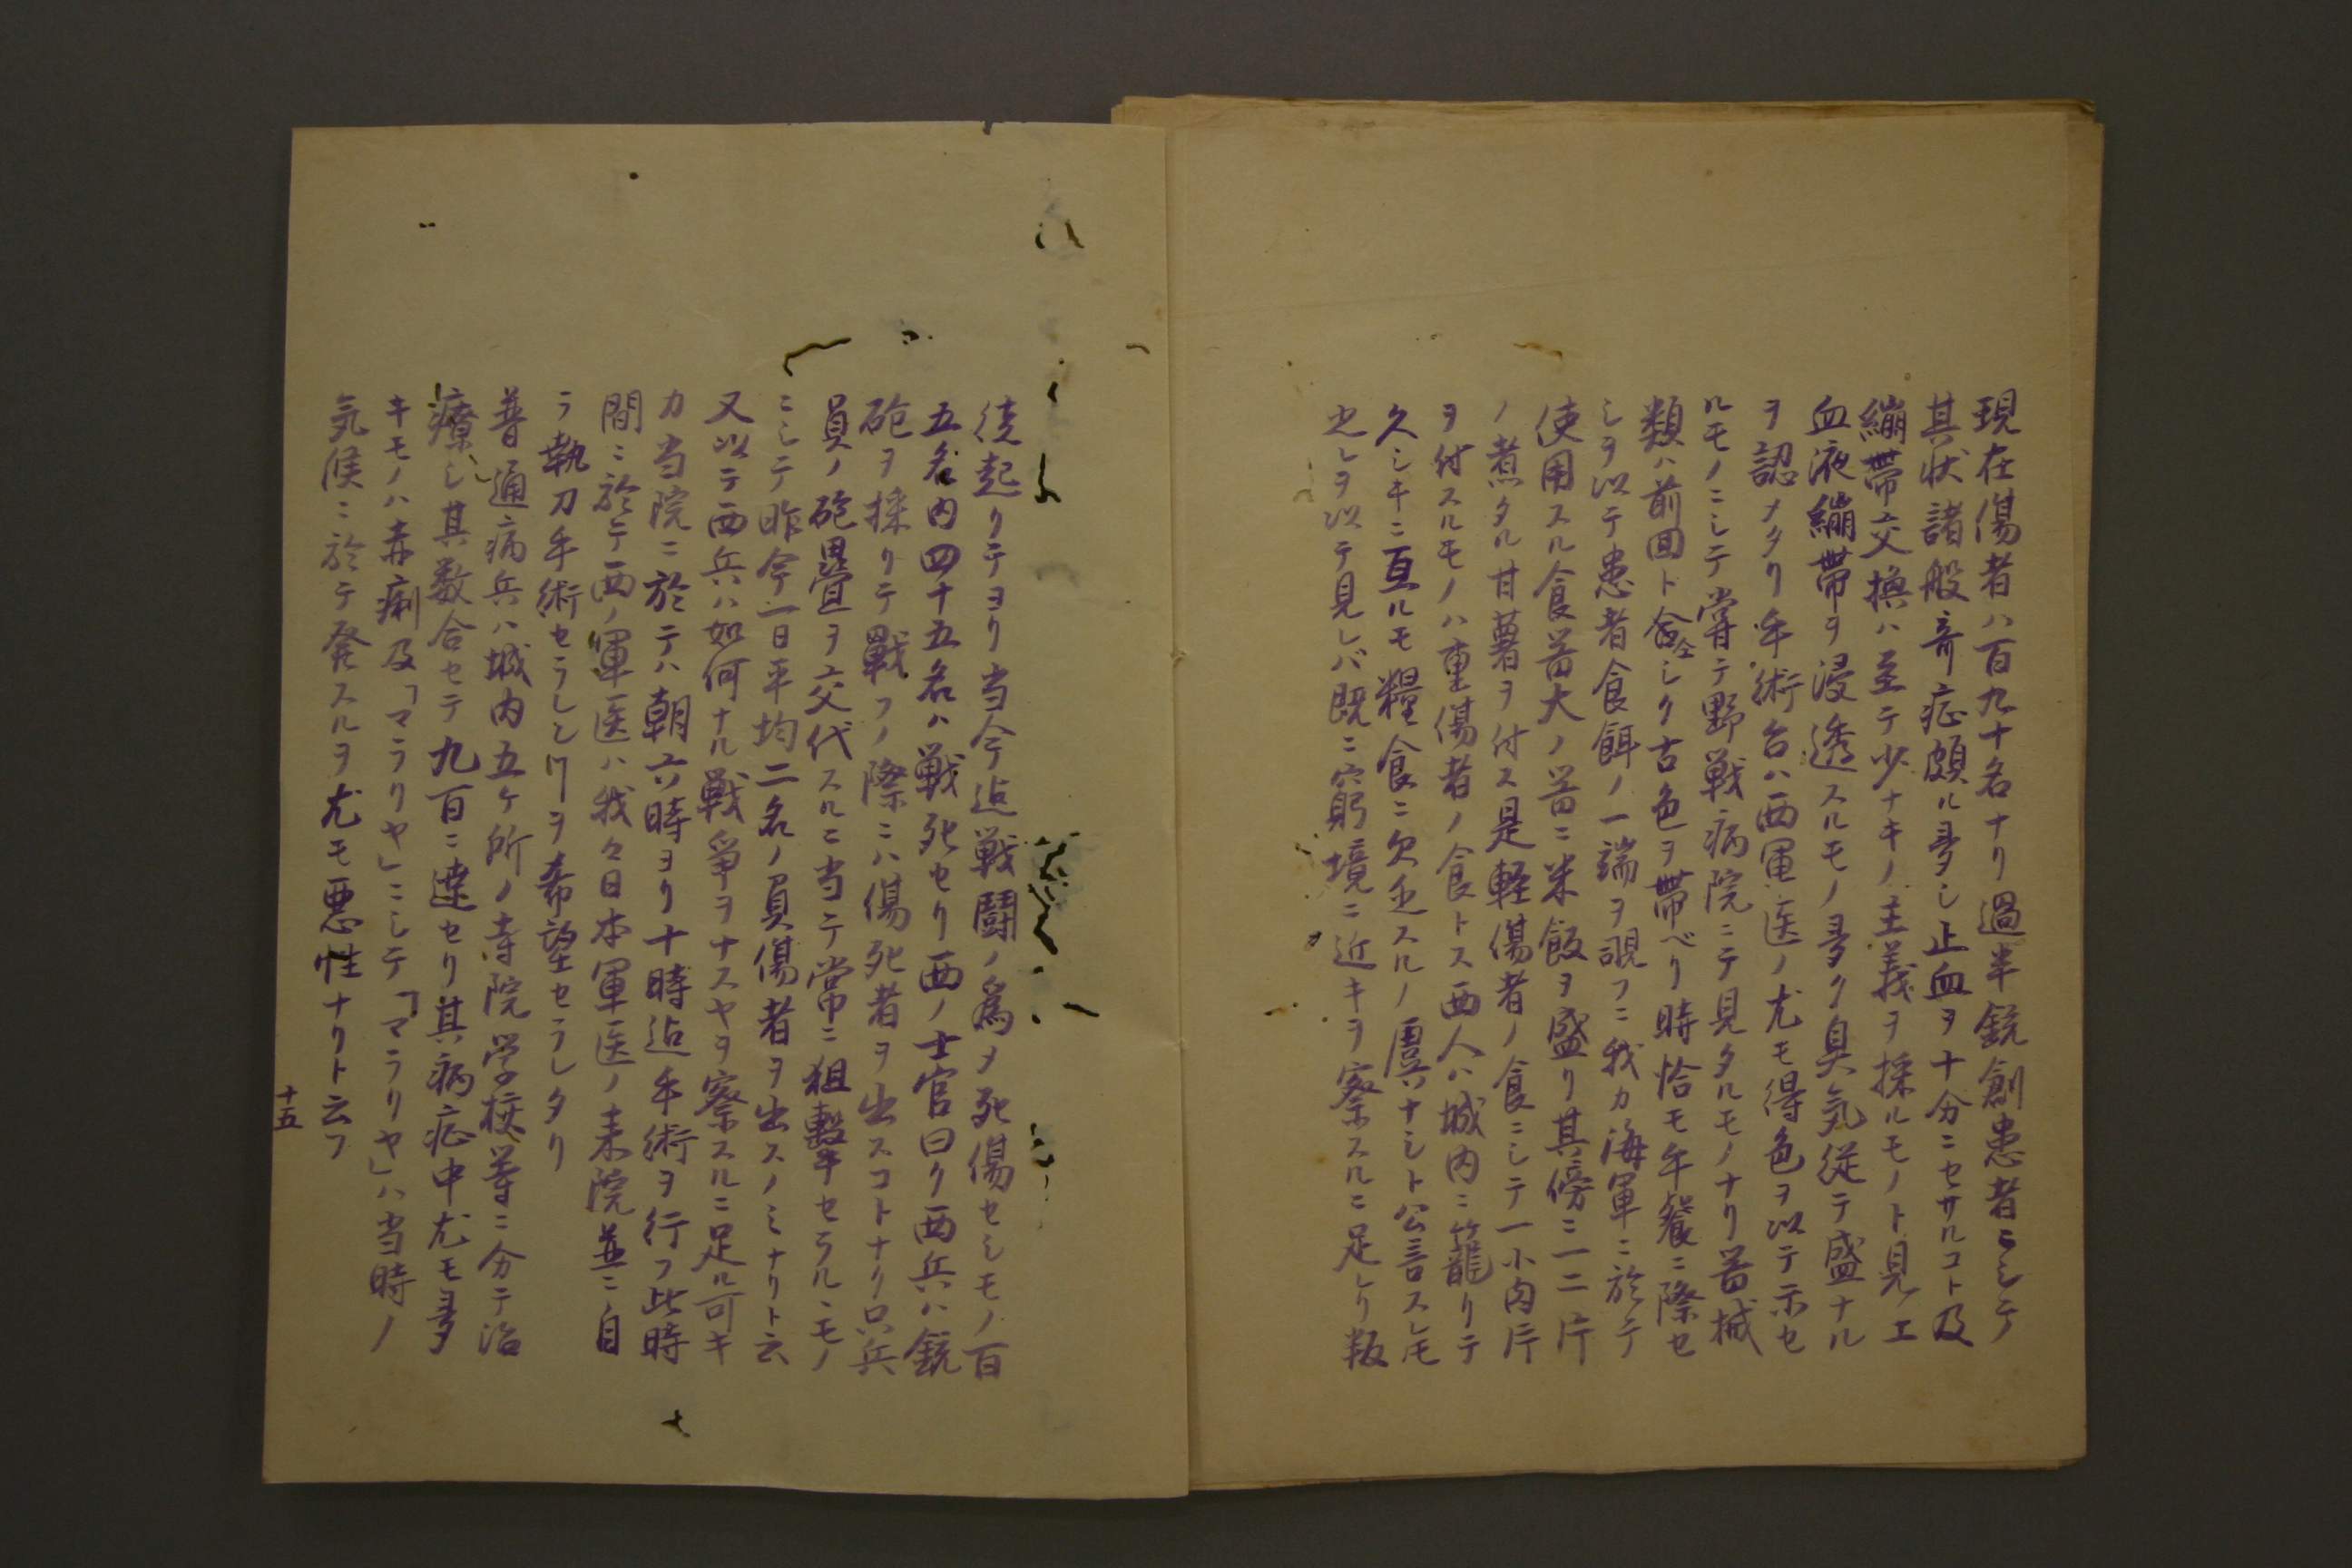 現在傷者ハ百九十名ナリ過半銃創患者ニシテ
其状諸般奇症頗ル多シ止血ヲ十分ニセサルコト及
繃帯交換ハ至テ少ナキノ主義ヲ採ルモノト見ヘエ
血液繃帯ヲ浸透スルモノ多ク臭気従テ盛ナル
ヲ認メタリ手術台ハ西軍医ノ尤モ得色ヲ以テ示セ
ルモノニシテ嘗テ野戦病院ニテ見タルモノナリ器械
類ハ前回ト仝シク古色ヲ帯ベリ時恰モ午餐ニ際セ
シヲ以テ患者食餌ノ一端ヲ覗フニ我カ海軍ニ於テ
使用スル食器大ノ器ニ米飯ヲ盛リ其傍ニ一二片
ノ煮タル甘薯ヲ付ス是軽傷者ノ食ニシテ一小肉片
ヲ付スルモノハ重傷者ノ食トス西人ハ城内ニ籠リテ
久シキニ亘ルモ糧食ニ欠乏スルノ虞ナシト公言スレモ
之レヲ以テ見レバ既ニ窮境ニ近キヲ察スルニ足レリ叛
徒起リテヨリ当今迠戦闘ノ為メ死傷セシモノ百
五名内四十五名ハ戦死セリ西ノ士官曰ク西兵ハ銃
砲ヲ採リテ戦フノ際ニハ傷死者ヲ出スコトナク只兵
員ノ砲塁ヲ交代スルニ当テ常ニ狙撃セラルヽモノ
ニシテ昨今一日平均二名ノ負傷者ヲ出スノミナリト云
又以テ西兵ハ如何ナル戦争ヲナスヤヲ察スルニ足ル可キ
カ当院ニ於テハ朝六時ヨリ十時迠手術ヲ行フ此時
間ニ於テ西ノ軍医ハ我々日本軍医ノ来院並ニ自
ラ執刀手術セラレンヿヲ希望セラレタリ
普通病兵ハ城内五ケ所ノ寺院学校等ニ分テ治
療シ其数合セテ九百ニ達セリ其病症中尤モ多
キモノハ赤痢及「マラリヤ」ニシテ「マラリヤ」ハ当時ノ
気候ニ於テ発スルヲ尤モ悪性ナリト云フ
十五